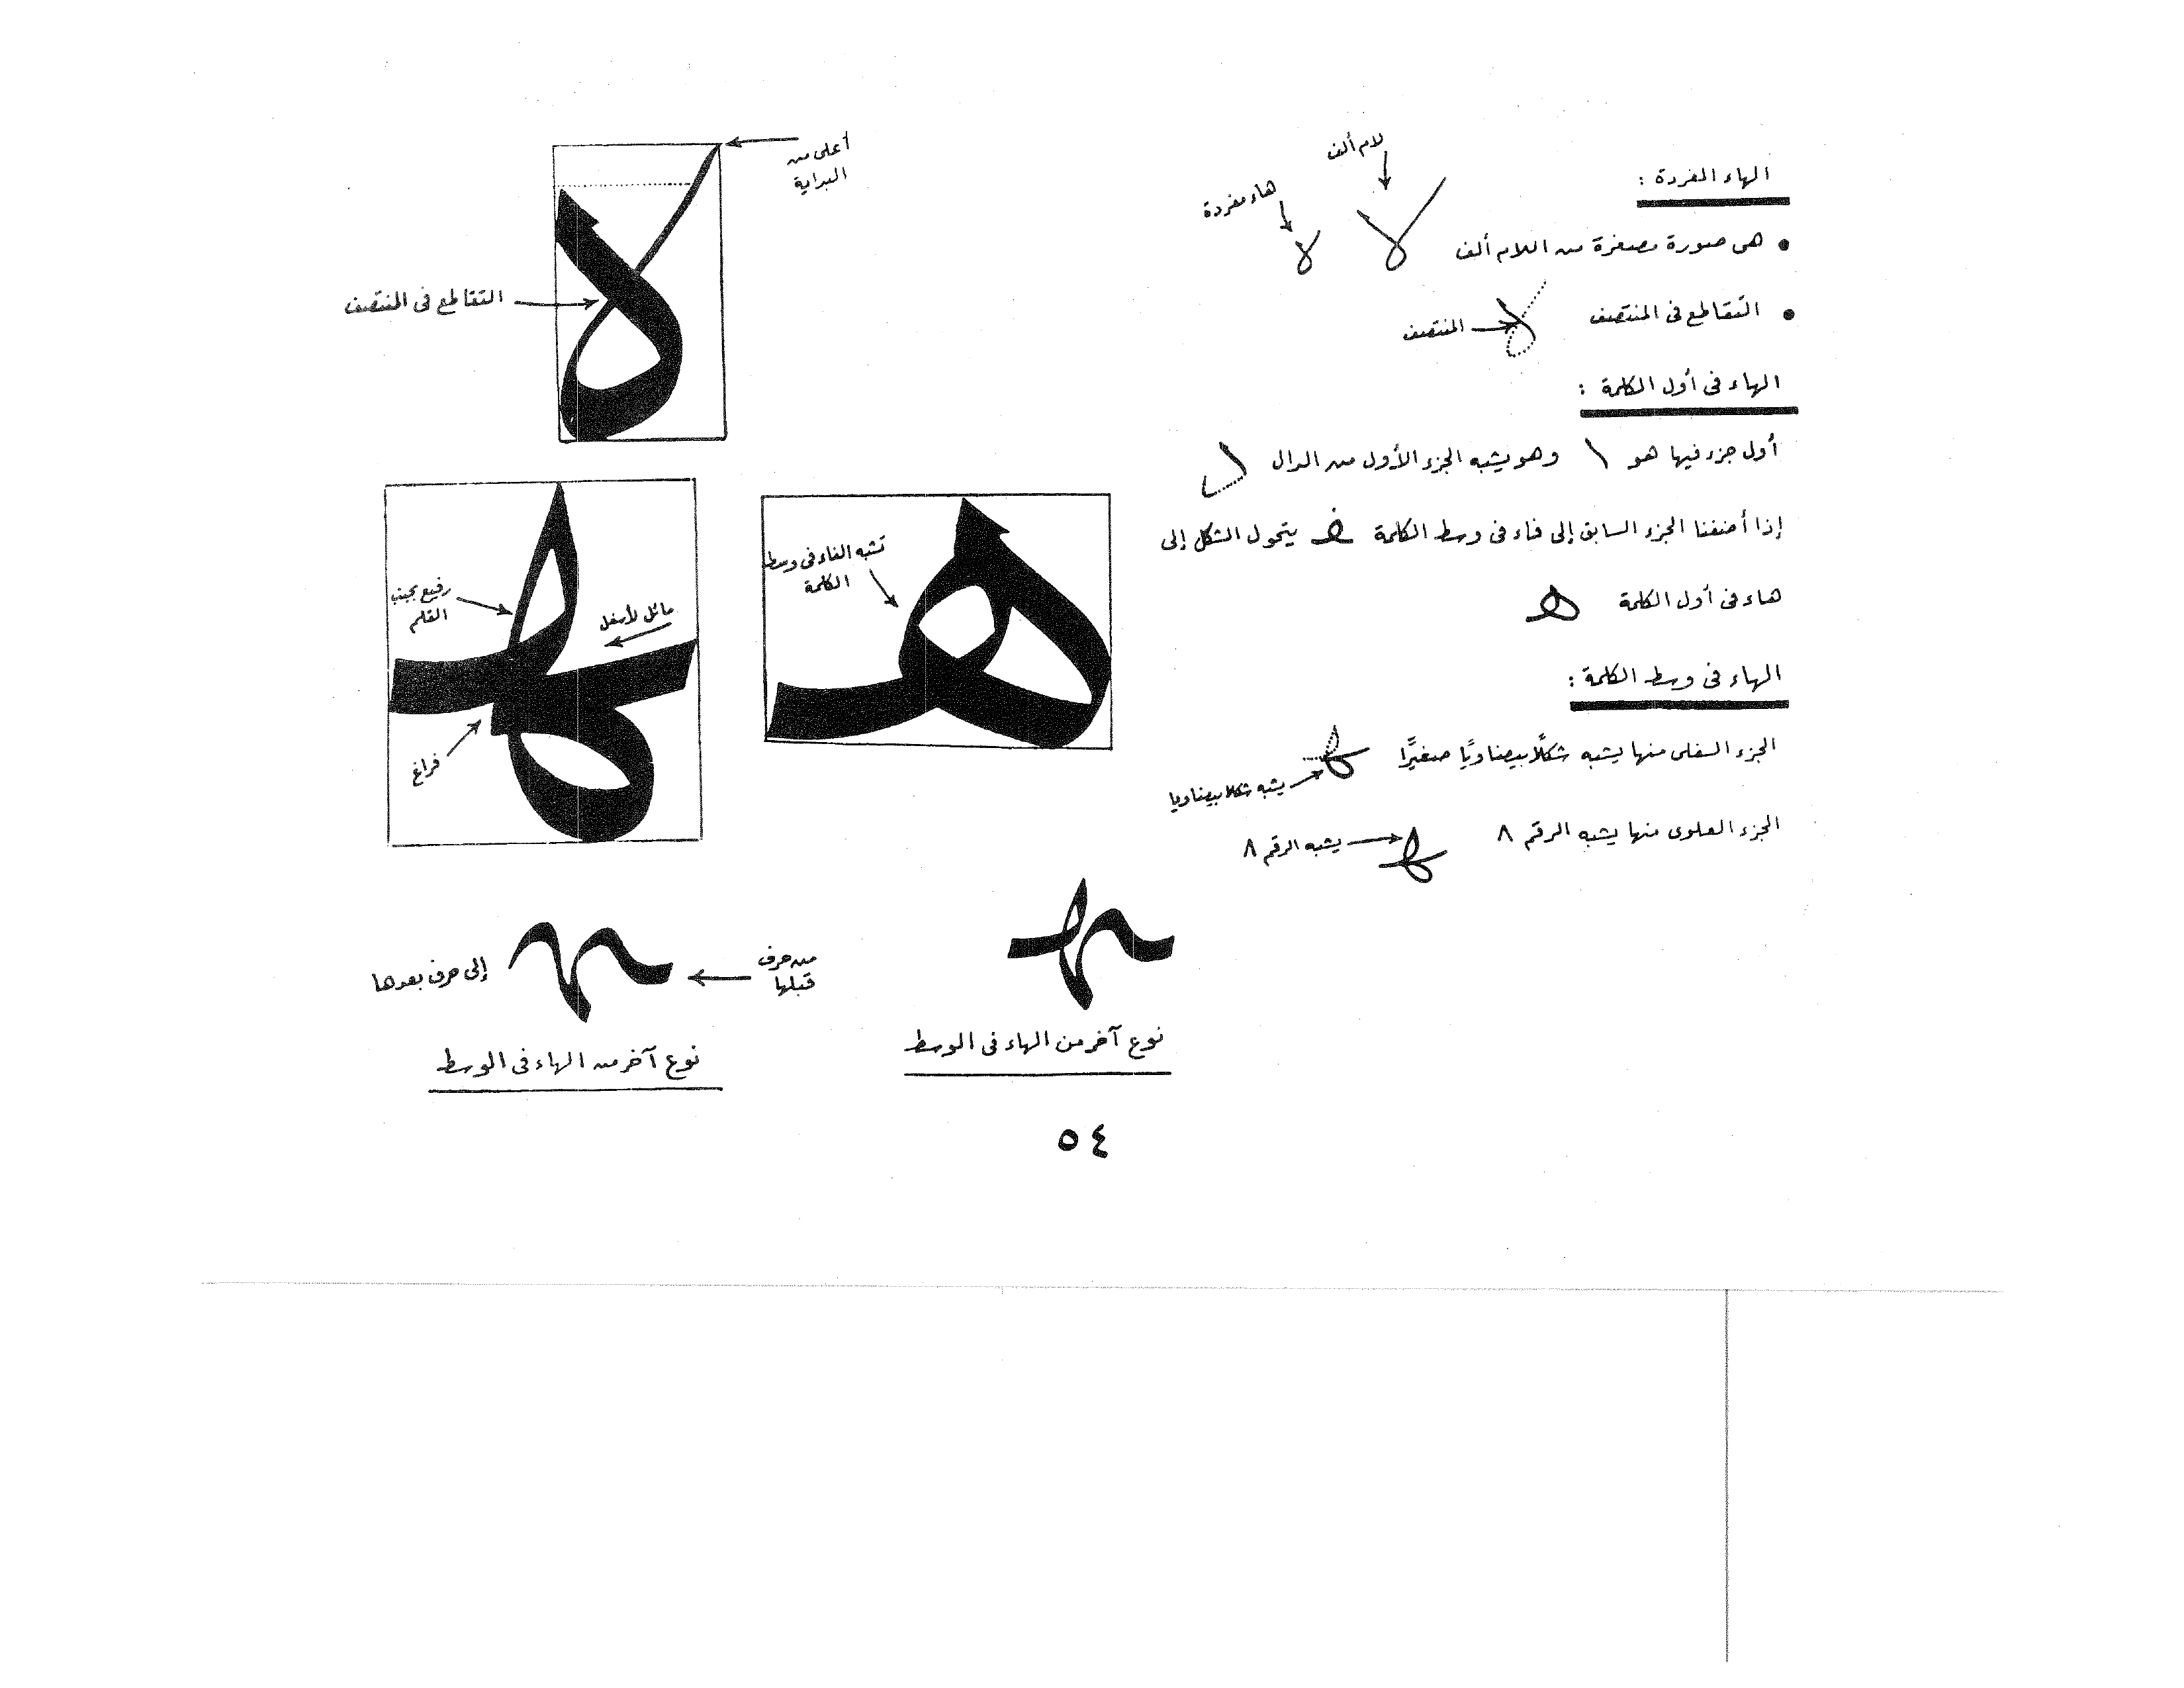 الهاء المفردة :
• هى صورة مصغرة من اللام ألف
لام ألف
هاء مفردة
• التقاطع فى المنتصف
المنتصف
الهاء فى أول الكلمة :
أول جزء فيها هو \ وهو يشبه الجزء الأول من الدال
إذا أضفنا الجزء السابق إلى فاء فى وسط الكلمة ـفـ يتحول الشكل إلى
هاء فى أول الكلمة هـ
الهاء فى وسط الكلمة :
الجزء السفلى منها يشبه شكلًا بيضاويًا صغيرًا
يشبه شكلا بيضاويا
الجزء العلوى منها يشبه الرقم ٨
يشبه الرقم ٨
أعلى من
البداية
التقاطع فى المنتصف
تشبه الفاء فى وسط
الكلمة
هـ
رفيع بجنب
القلم
مائل لأسفل
فراغ
ـهـ
نوع آخر من الهاء فى الوسط
من حرف
قبلها
إلى حرف بعدها
نوع آخر من الهاء فى الوسط
٥٤